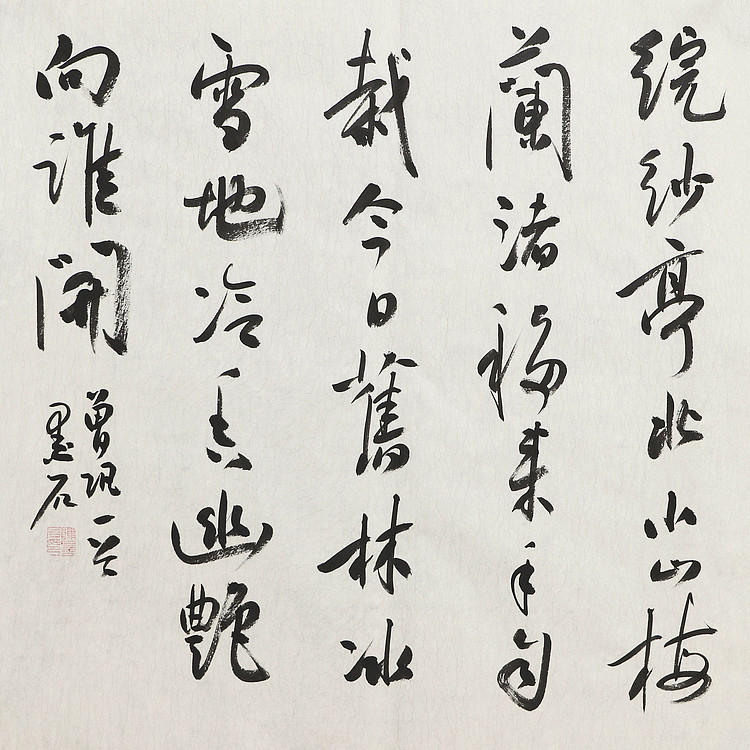 綄紗亭北小山梅
蘭渚移来手自
栽今日舊林冰
雪地冷香幽艷
向誰開
曾巩一首
墨石